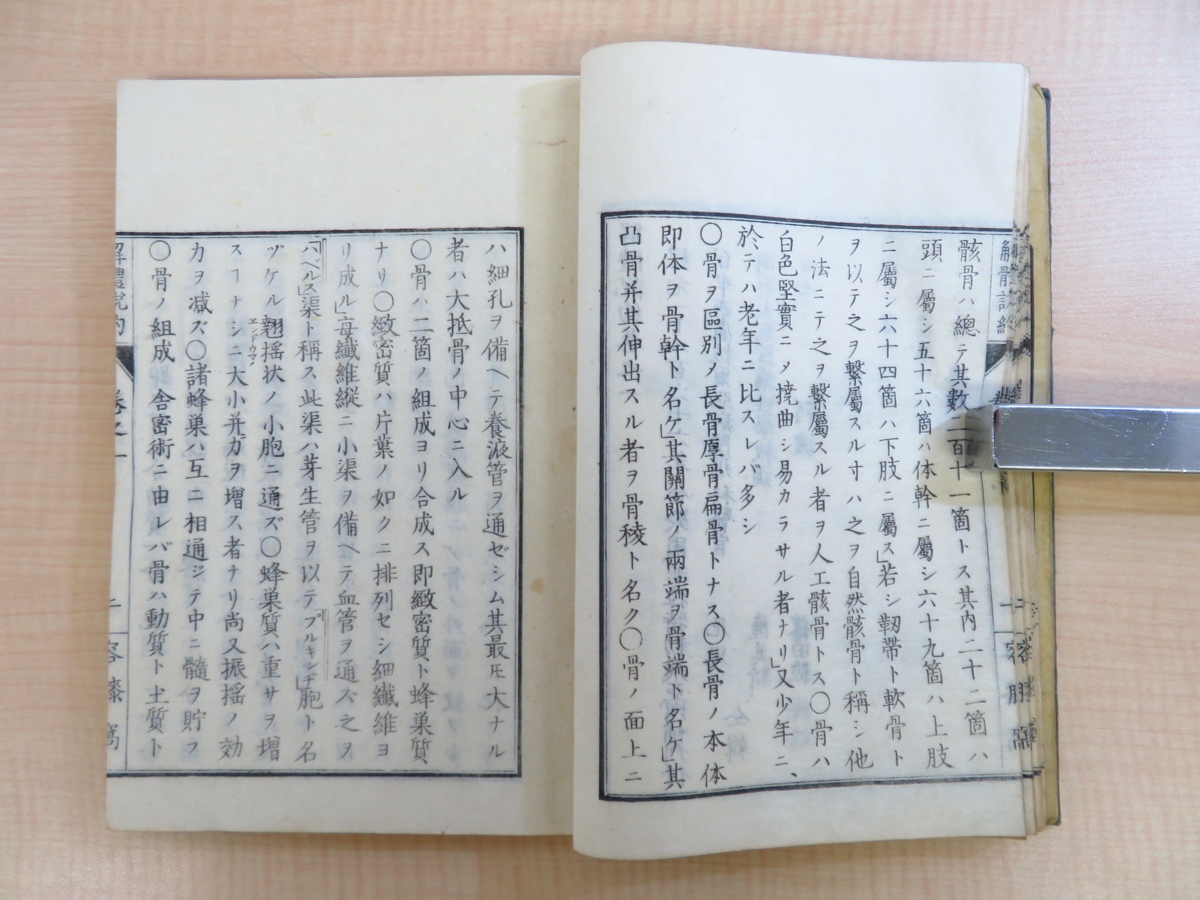 骸骨ハ總テ其數二百十一箇トス其内二十二箇ハ
頭ニ屬シ五十六箇ハ体幹ニ屬シ六十九箇ハ上肢
ニ屬シ六十四箇ハ下肢ニ屬ス」若シ靭帯ト軟骨ト
ヲ以テ之ヲ繋屬スルヿハ之ヲ自然骸骨ト稱シ他
ノ法ニテ之ヲ繋屬スル者ヲ人工骸骨トス〇骨ハ
白色堅實ニメ撓曲シ易カラサル者ナリ」又少年ニ、
於テハ老年ニ比スレバ多シ
〇骨ヲ區别メ長骨厚骨扁骨トナス〇長骨ノ本体
即体ヲ骨幹ト名ケ」其關節ノ兩端ヲ骨端ト名ケ」其
凸骨并其伸出スル者ヲ骨稜ト名ク〇骨ノ面上ニ
ハ細孔ヲ備ヘテ養液管ヲ通ゼシム其最モ大ナル
者ハ大抵骨ノ中心ニ入ル
〇骨ハ二箇ノ組成ヨリ合成ス即緻密質ト蜂巣質
ナリ〇緻密質ハ片葉ノ如クニ排列セシ細纖維ヨ
リ成ル」毎纖維縱ニ小渠ヲ備ヘテ血管ヲ通ズ之ヲ
「ハベルス」渠ト稱ス此渠ハ芽生管ヲ以テ「プルキンヂ」胞ト名
ヅケル翺揺状ノ小胞ニ通ズ〇蜂巣質ハ重サヲ増
スヿナシニ大小并力ヲ增ス者ナリ尚又振揺ノ効
力ヲ减ズ〇諸蜂巣ハ互ニ相通ジテ中ニ髓ヲ貯フ
〇骨ノ組成舎密術ニ由レバ骨ハ動質ト土質ト
卷之一
二